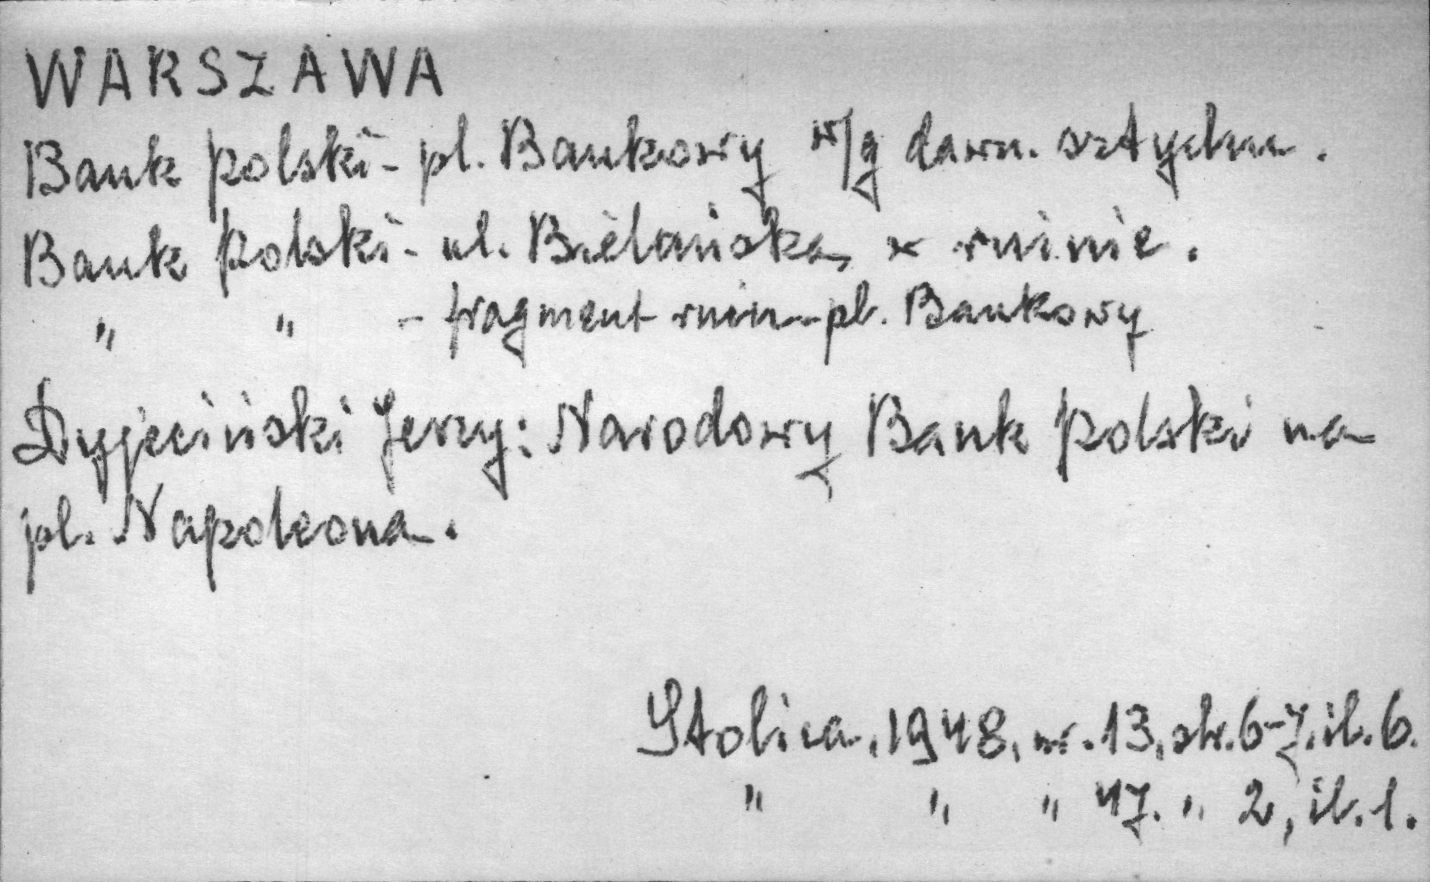 WARSZAWA
Bank Polski - pl. Bankowy w/g dawn. sztychu.
Bank Polski - ul. Bielańska, w ruinie.
" " - fragment ruin - pl. Bankowy
Dyjeciński Jerzy: Narodowy Bank Polski na
pl. Napoleona.
Stolica, 1948, nr. 13, str. 6-7, il. 6.
" " " 47. " 2, il. 1.